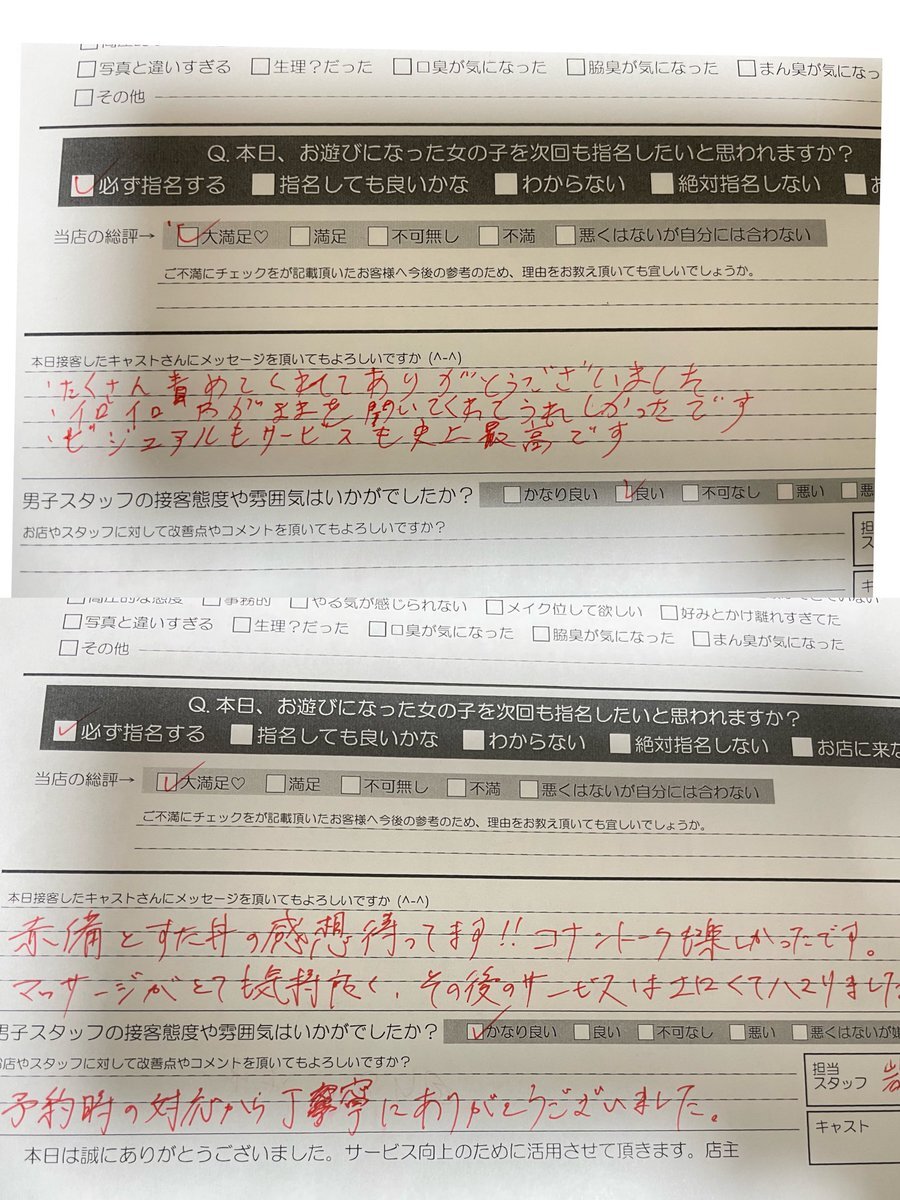 □写真と違いすぎる □生理？だった □口臭が気になった □脇臭が気になった □まん臭が気になっ
□その他
Q. 本日、お遊びになった女の子を次回も指名したいと思われますか？
必ず指名する 指名しても良いかな わからない 絶対指名しない
当店の総評→ 大満足♡ □満足 □不可無し □不満 □悪くはないが自分には合わない
ご不満にチェックをが記載頂いたお客様へ今後の参考のため、理由をお教え頂いても宜しいでしょうか。
本日接客したキャストさんにメッセージを頂いてもよろしいですか (^-^)
・たくさん責めてくれてありがとうございました
・イロイロわがままを聞いてくれてうれしかったです
・ビジュアルもサービスも史上最高です
男子スタッフの接客態度や雰囲気はいかがでしたか？ □かなり良い 良い □不可なし □悪い
お店やスタッフに対して改善点やコメントを頂いてもよろしいですか？
担
ス
キ
高圧的な態度 □事務的 □やる気が感じられない □メイク位して欲しい □好みとかけ離れすぎてた
□写真と違いすぎる □生理？だった □口臭が気になった □脇臭が気になった □まん臭が気になった
□その他
Q. 本日、お遊びになった女の子を次回も指名したいと思われますか？
必ず指名する 指名しても良いかな わからない 絶対指名しない お店に来な
当店の総評→ 大満足♡ □満足 □不可無し □不満 □悪くはないが自分には合わない
ご不満にチェックをが記載頂いたお客様へ今後の参考のため、理由をお教え頂いても宜しいでしょうか。
本日接客したキャストさんにメッセージを頂いてもよろしいですか (^-^)
赤備とすた丼の感想待ってます!! コナントークも楽しかったです。
マッサージがとても気持良く、その後のサービスはエロくてハマりました
男子スタッフの接客態度や雰囲気はいかがでしたか？ かなり良い □良い □不可なし □悪い □悪くはないが
お店やスタッフに対して改善点やコメントを頂いてもよろしいですか？
担当
スタッフ
予約時の対応から丁寧にありがとうございました。
キャスト
本日は誠にありがとうございました。サービス向上のために活用させて頂きます。店主